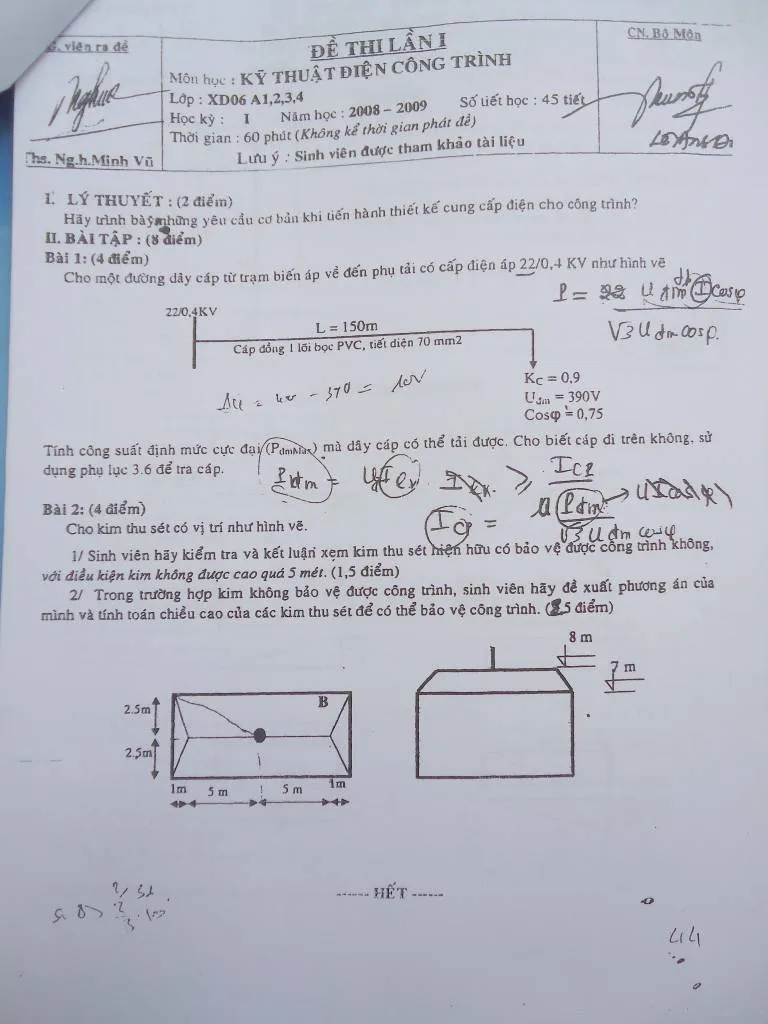 G. viên ra đề
ĐỀ THI LẦN I
CN. Bộ Môn
Môn học : KỸ THUẬT ĐIỆN CÔNG TRÌNH
Lớp : XD06 A1,2,3,4
Học kỳ : I Năm học : 2008 – 2009 Số tiết học : 45 tiết
Thời gian : 60 phút (Không kể thời gian phát đề)
Ths. Ng.h.Minh Vũ
Lưu ý : Sinh viên được tham khảo tài liệu
I. LÝ THUYẾT : (2 điểm)
Hãy trình bày những yêu cầu cơ bản khi tiến hành thiết kế cung cấp điện cho công trình?
II. BÀI TẬP : (8 điểm)
Bài 1: (4 điểm)
Cho một đường dây cáp từ trạm biến áp về đến phụ tải có cấp điện áp 22/0,4 KV như hình vẽ
22/0,4KV
L = 150m
Cáp đồng 1 lõi bọc PVC, tiết diện 70 mm2
√3 U đm cosφ.
KC = 0,9
Uđm = 390V
Cosφ = 0,75
Tính công suất định mức cực đại (PđmMax) mà dây cáp có thể tải được. Cho biết cáp đi trên không, sử
dụng phụ lục 3.6 để tra cáp.
Bài 2: (4 điểm)
Cho kim thu sét có vị trí như hình vẽ.
1/ Sinh viên hãy kiểm tra và kết luận xem kim thu sét hiện hữu có bảo vệ được công trình không,
với điều kiện kim không được cao quá 5 mét. (1,5 điểm)
2/ Trong trường hợp kim không bảo vệ được công trình, sinh viên hãy đề xuất phương án của
mình và tính toán chiều cao của các kim thu sét để có thể bảo vệ công trình. ( 5 điểm)
8 m
7 m
B
2.5m
2,5m
1m 5 m 5 m 1m
------ HẾT ------
44